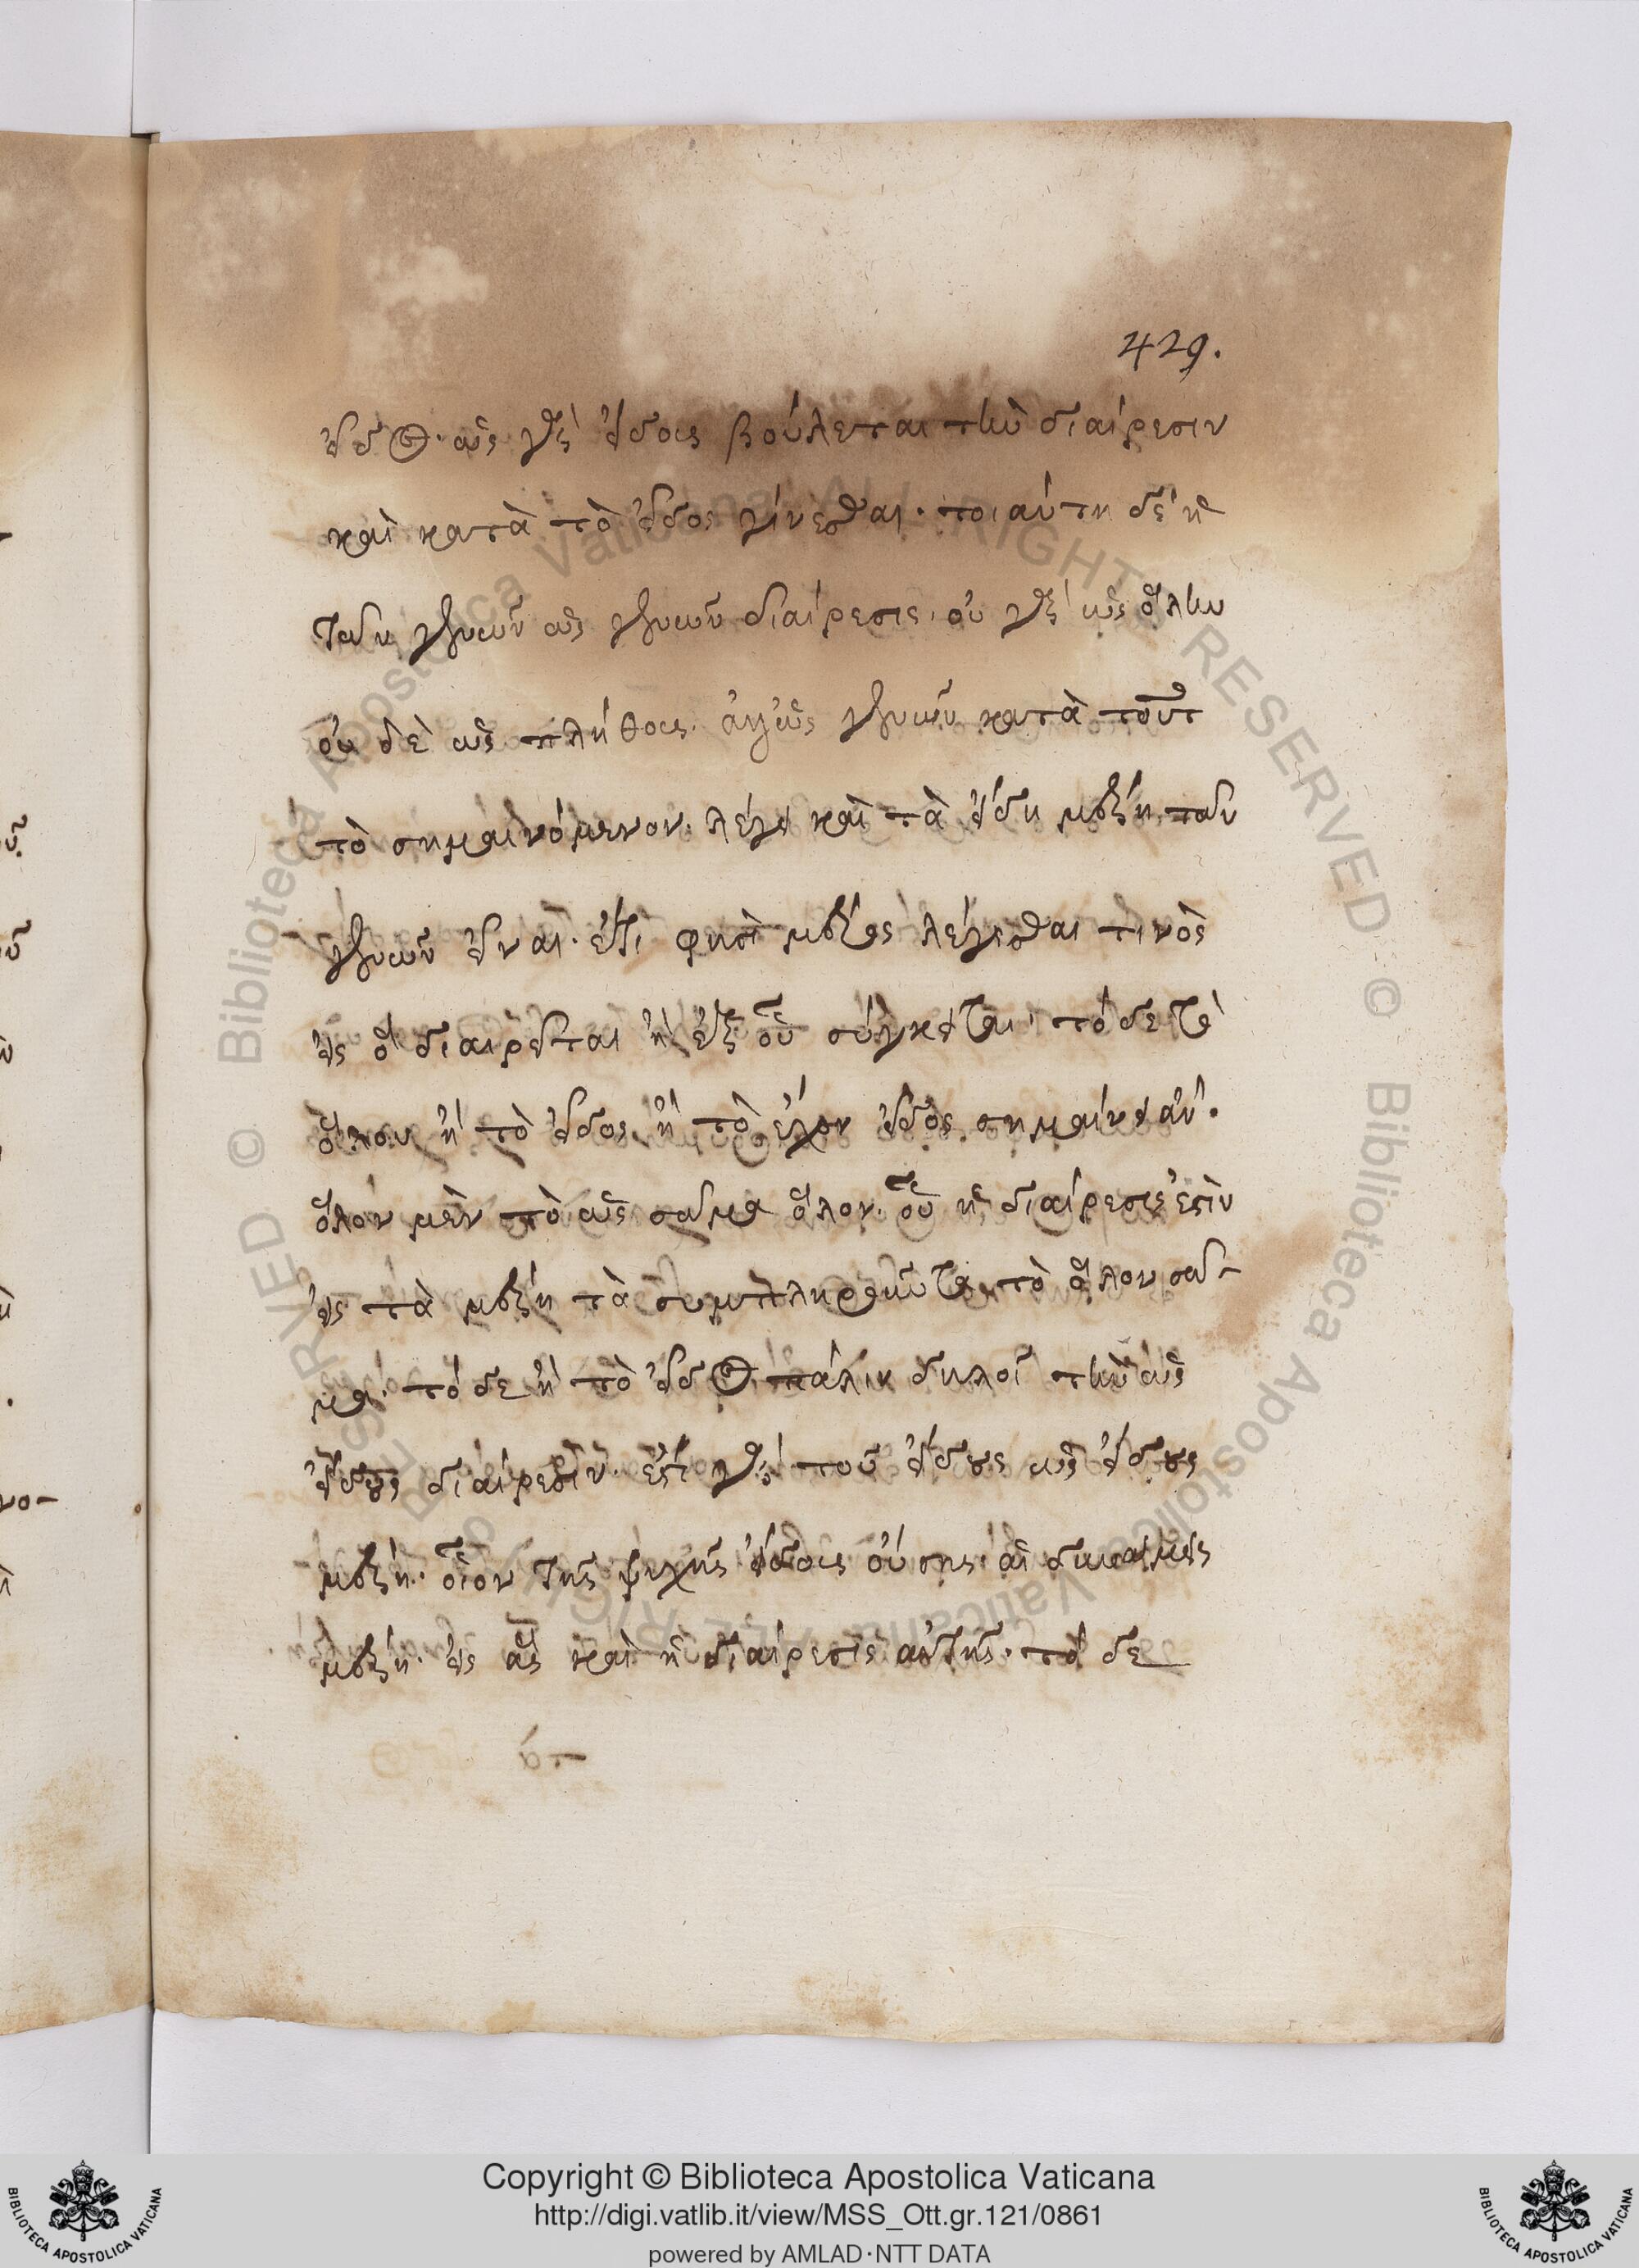 429.
εἶδος. ὡς γὰρ εἴδους βούλεται τὴν διαίρεσιν
καὶ κατὰ τὸ εἶδος γίνεσθαι. τοιαύτη δὲ ἡ
τῶν γενῶν ὡς γενῶν διαίρεσις. οὐ γὰρ ὡς ὅλων
οὐδὲ ὡς πλήθους. ἀλλ' ὡς γενῶν κατὰ τοῦτ
τὸ σημαινόμενον. λέγει καὶ τὰ εἴδη μέρη τῶν
γενῶν εἶναι. ἔτι φησὶ μέρος λέγεσθαι τινὸς
εἰς ὃ διαιρεῖται ἢ ἐξ οὗ σύγκειται. τό δε τὸ
ὅλον ἢ τὸ εἶδος ἢ τὸ ἔχον εἶδος. σημαίνει ἂν.
ὅλον μὲν τὸ ὡς σῶμα ὅλον. οὗ ἡ διαίρεσις ἐστὶν
εἰς τὰ μέρη τὰ συμπληροῦντα τὸ ὅλον σῶ-
μα. τό δε ἢ τὸ εἶδος πάλιν δηλοῖ τὴν ὡς
εἴδους διαίρεσιν. ἔστι γὰρ τοῦ εἴδους ὡς εἴδους
μέρη. οἷον τῆς ψυχῆς εἴδους οὔσης. αἱ δυνάμεις
μέρη. εἰς ἃς καὶ ἡ διαίρεσις αὐτῆς. τό δε
Copyright © Biblioteca Apostolica Vaticana
http://digi.vatlib.it/view/MSS_Ott.gr.121/0861
powered by AMLAD·NTT DATA